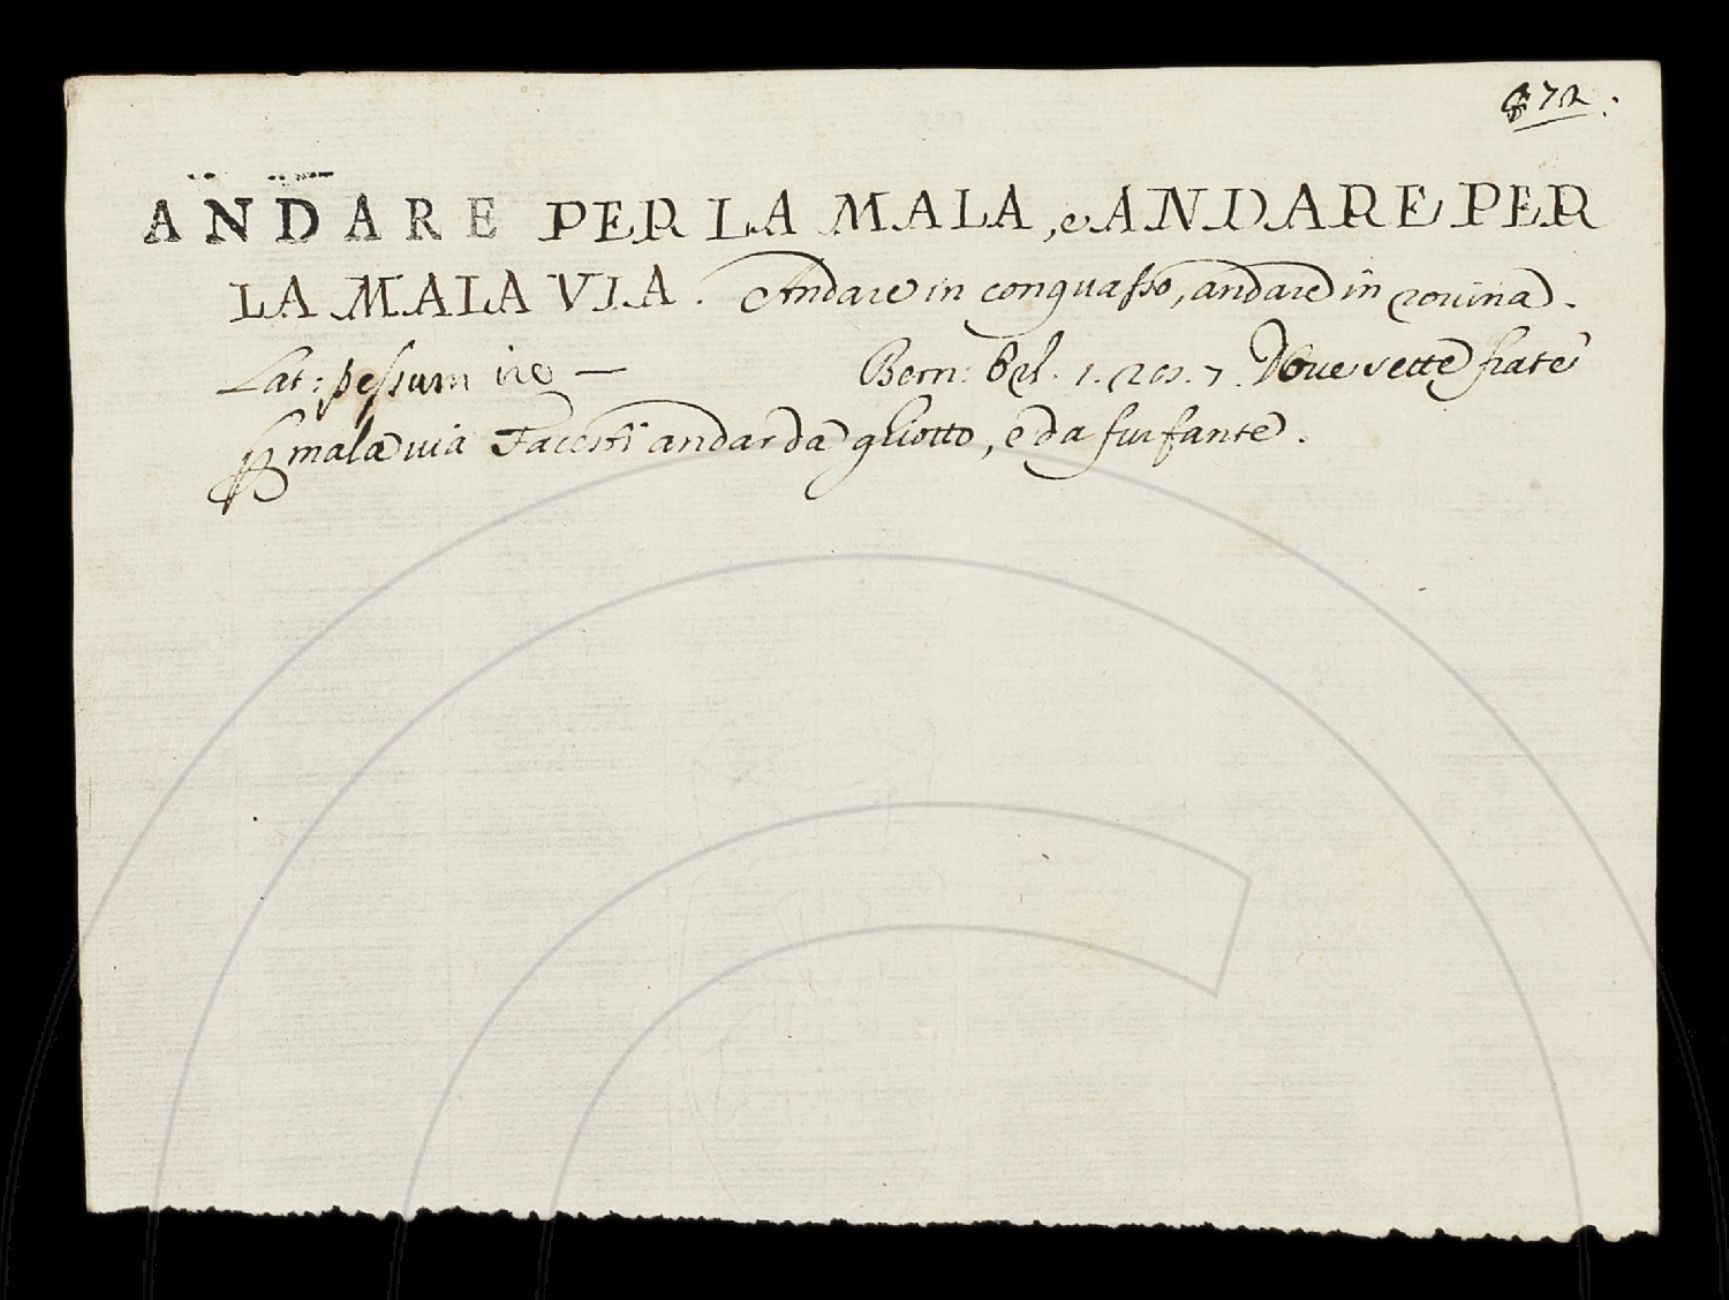 872.
ANDARE PER LA MALA, e ANDARE PER
LA MALA VIA. Andare in conquasso, andare in rovina.
Lat: pessum ire — Bern: Orl. 1. 20. 7. Doue sette frate
mala uia Facesti andar da ghiotto, e da furfante.